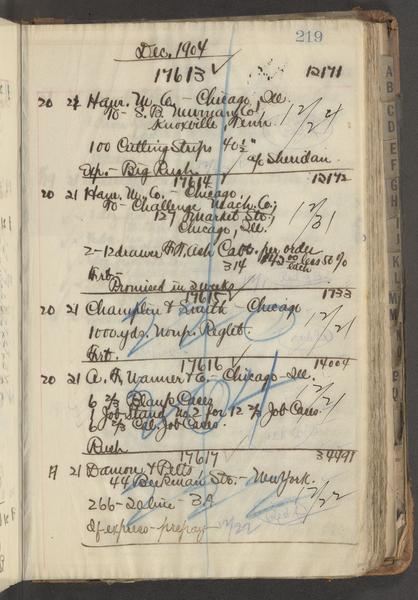 219
Dec. 1904
17613 ✓ 12171
20 21 Ham. M. Co. - Chicago, Ill.
To - S. B. Newman Co. 12/24
Knoxville, Tenn.
100 Cutting Strips 40½"
Exp. - Big Rush a/c Sheridan
17614 ✓ 12172
20 21 Ham. M. Co. - Chicago,
To - Challenge Mach. Co., 12/31
127 Market St.,
Chicago, Ill.
2 - 12 drawer Ash Cabt. per order
314 less 50%
each
Frt. -
Promised in 2 weeks
17615 ✓ 1733
20 21 Champlin & Smith - Chicago 12/21
1000 yds. Nonp. Reglet.
Frt.
17616 ✓ 14004
20 21 A. F. Wanner & Co. - Chicago - Ill.
6 2/3 Blank Cases 12/21
1 Job Stand No 2 for 12 2/3 Job Cases
6 2/3 Cal. Job Cases.
Rush
17617 ✓ 34491
21 Damon & Peets
44 Beekman St. - New York. 12/22
266 - 2 line - 3A
If express - prepay 12/22
A
B
C
D
E
F
G
H
I
J
K
L
M